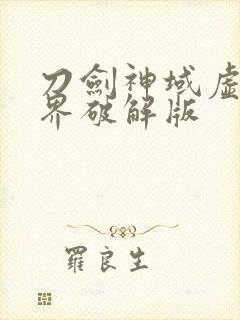 刀劍神域虛
界破解版
羅良生